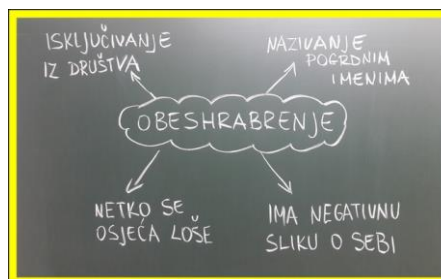 ISKLJUČIVANJE
IZ DRUŠTVA
NAZIVANJE
POGRDNIM
IMENIMA
OBESHRABRENJE
NETKO SE
OSJEĆA LOŠE
IMA NEGATIVNU
SLIKU O SEBI